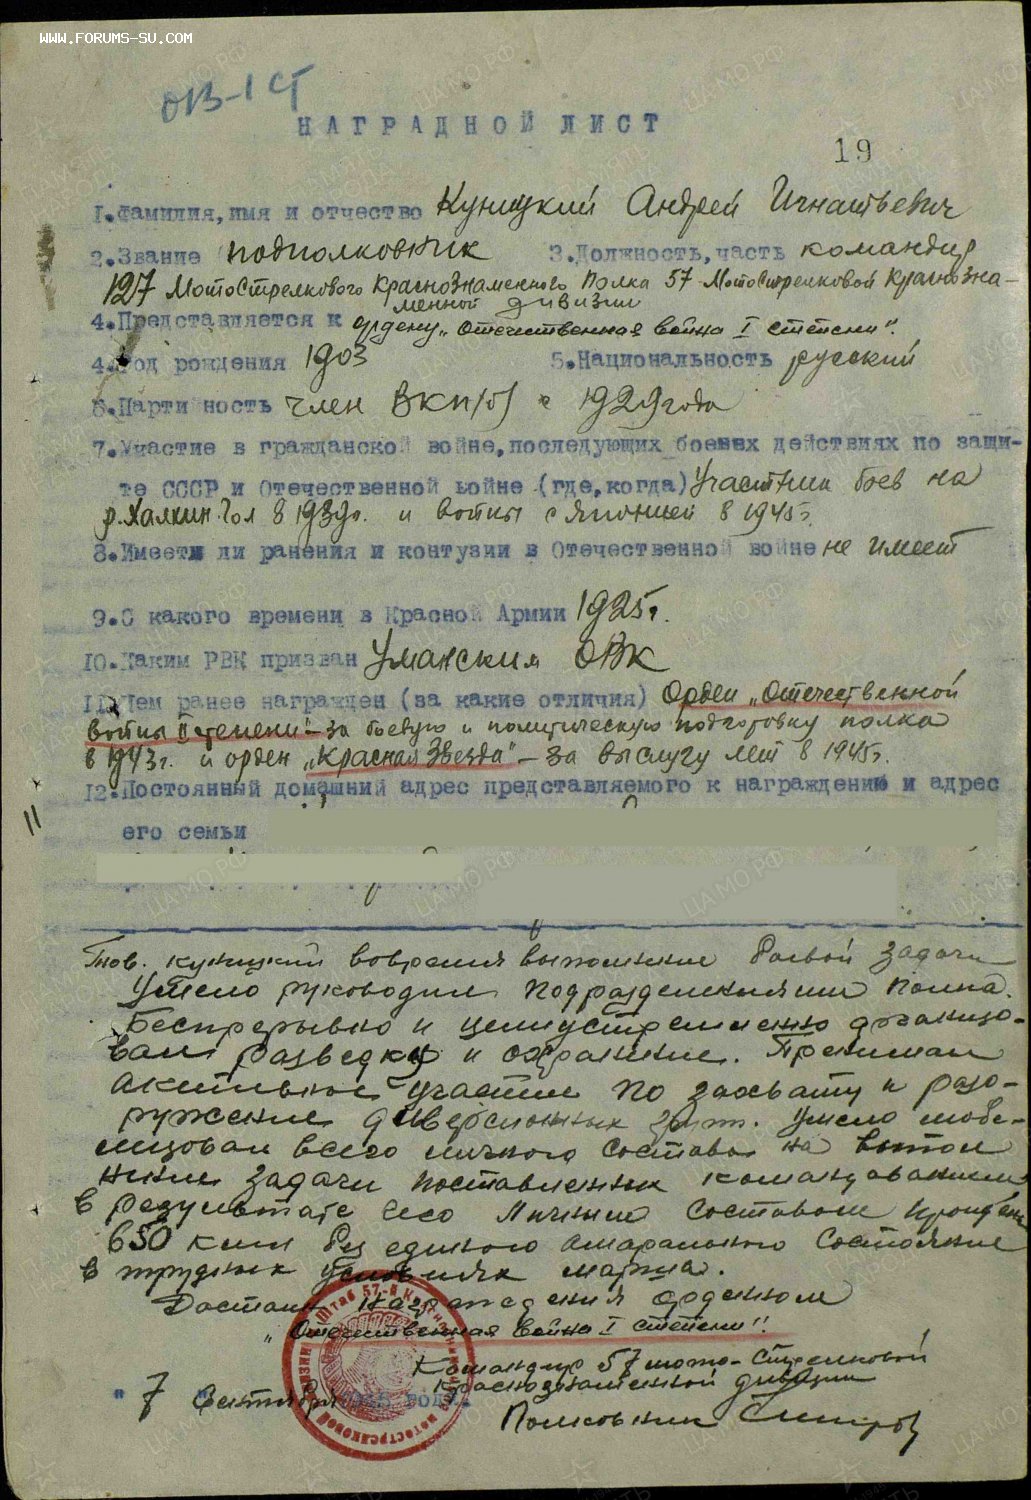 WWW.FORUMS-SU.COM
ОВ-1 СТ
НАГРАДНОЙ ЛИСТ
19
1.Фамилия,имя и отчество Куницкий Андрей Игнатьевич
2.Звание подполковник 3.Должность,часть командир
127 Мотострелкового Краснознаменного Полка 57 Мотострелковой Краснозна-
менной дивизии
4.Представляется к ордену „Отечественная война I степени".
4.Год рождения 1903 5.Национальность русский
6.Парти ность член ВКП/б/ с 1929 года
7.Участие в гражданской войне,последующих боевех действиях по защи-
те СССР и Отечественной войне (где,когда) Участник боев на
р.Халкин-Гол в 1939г. и войны с Японией в 1945г.
8.Имеет ли ранения и контузии в Отечественной войне не имеет
9.С какого времени в Красной Армии 1925г.
10.Каким РВК призван Уманским ОВК
11.Чем ранее награжден (за какие отличия) Орден „Отечественной
войны II степени" – за боевую и политическую подготовку полка
в 1943г. и орден „Красная Звезда" – за выслугу лет в 1945г.
12.Постоянный домашний адрес представляемого к награждению и адрес
его семьи
11
Тов. Куницкий вовремя выполнение боевой задачи
Умело руководил подразделениями полка.
Беспрерывно и целеустремленно организо-
вал разведку и охранение. Принимал
активное участие по захвату и разо-
ружение диверсионных групп. Умело моби-
лизовал всего личного состава на выпол
нение задачи поставленных командованием
В результате чего личным составом пройдено
650 клм без единого аморального состояние
в трудных условиях марша.
Достоин награждения орденом
„Отечественная война I степени".
Командир 57 мото-стрелковой
Краснознаменной дивизии
Полковник
" 7 " Сентября 1945 года.
Штаб 57-й Краснознаменной мотострелковой дивизии